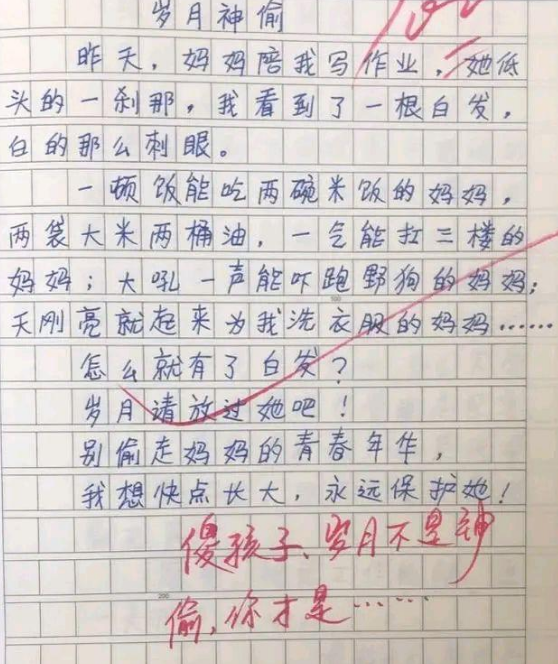 岁月神偷
昨天，妈妈陪我写作业，她低
头的一刹那，我看到了一根白发，
白的那么刺眼。
一顿饭能吃两碗米饭的妈妈，
两袋大米两桶油，一气能扛三楼的
妈妈；大吼一声能吓跑野狗的妈妈；
天刚亮就起来为我洗衣服的妈妈……
怎么就有了白发？
岁月请放过她吧！
别偷走妈妈的青春年华，
我想快点长大，永远保护她！
傻孩子、岁月不是神
偷，你才是……